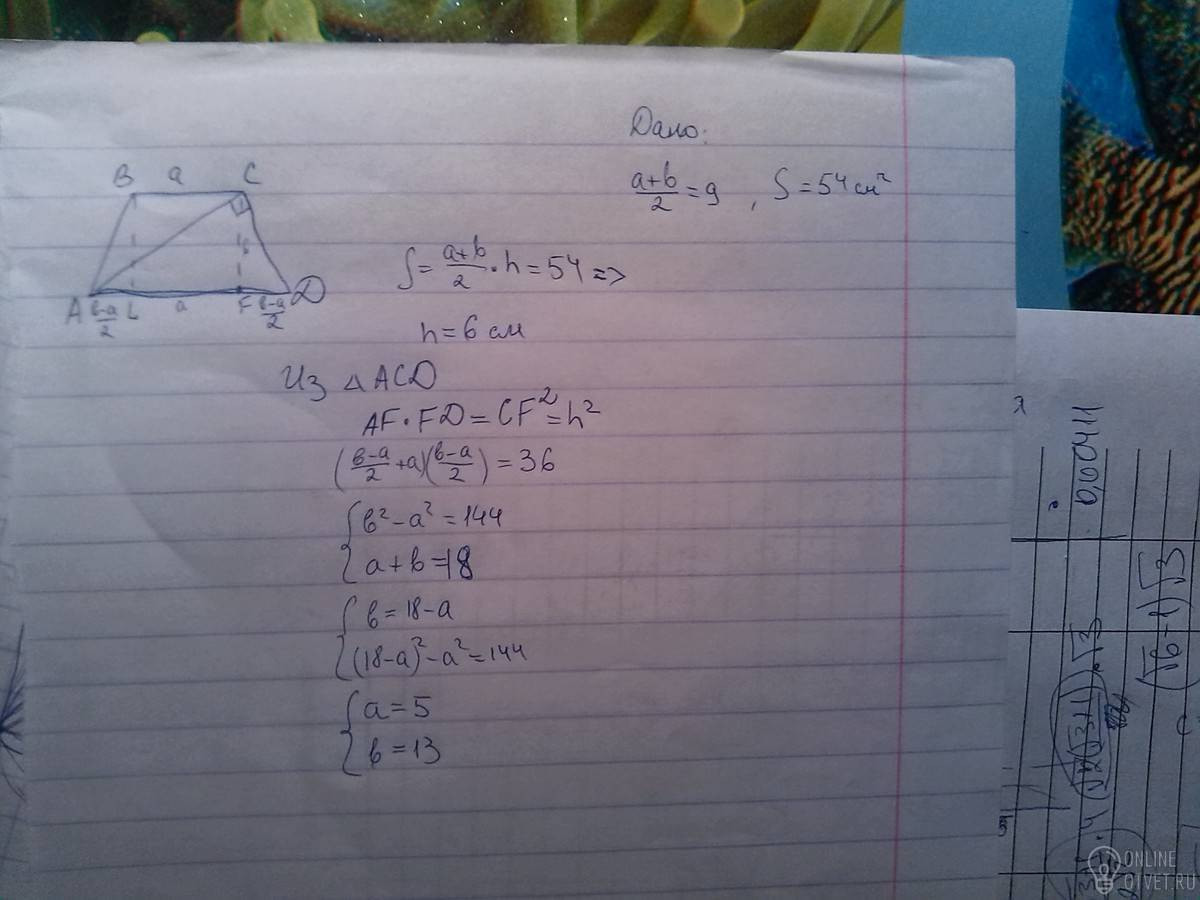 Дано:
(a+b)/2 = 9, S = 54 см²
B a C
A (b-a)/2 L a F (b-a)/2 D
S = (a+b)/2 · h = 54 =>
h = 6 см
Из △ACD
AF · FD = CF² = h²
((b-a)/2 + a)((b-a)/2) = 36
{ b² - a² = 144
a + b = 18
{ b = 18 - a
(18-a)² - a² = 144
{ a = 5
b = 13
0,00411
(√6-1)√3
ONLINE
OTVET.RU